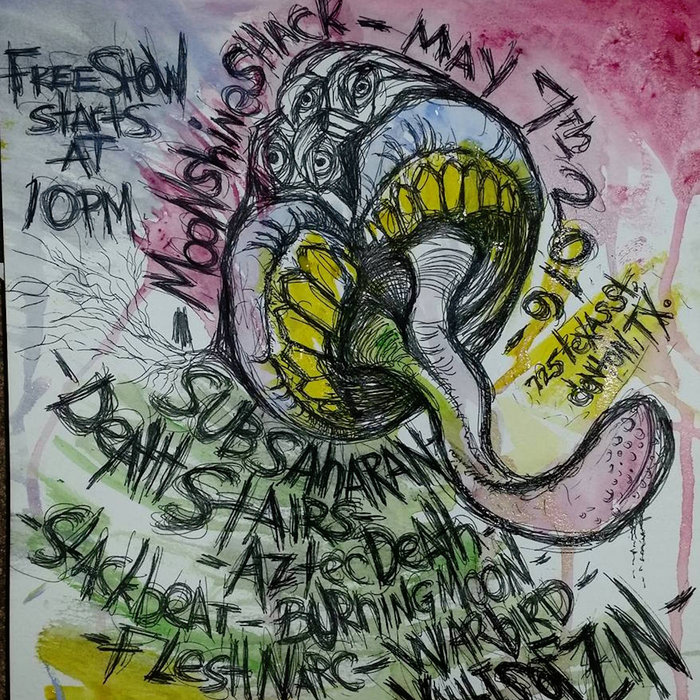 FREE SHOW
STARTS
AT
10PM
MOONSHINE SHACK - MAY 7TH 2016 -
725 TEXAS ST.
DENTON, TX.
- SUBSAHARAN -
- DEATH STAIRS -
- AZTEC DEATH -
- SLACKBEAT - BURNING MOON -
- FLESH NARC - WARBIRD -